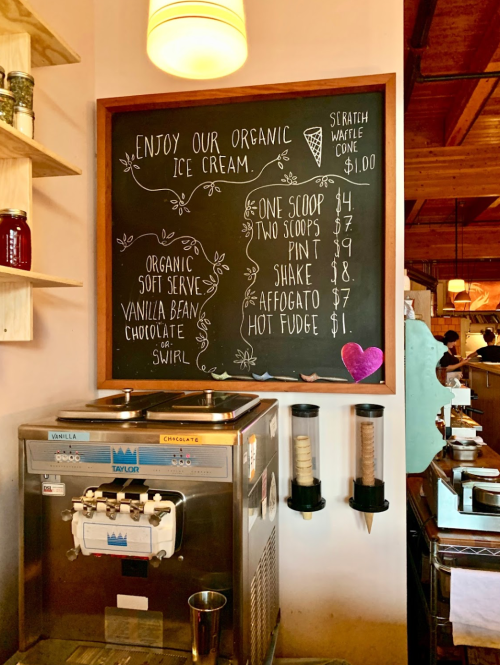 ENJOY OUR ORGANIC
ICE CREAM.
SCRATCH
WAFFLE
CONE
$1.00
ONE SCOOP $4.
TWO SCOOPS $7.
PINT $9
SHAKE $8.
AFFOGATO $7
HOT FUDGE $1.
ORGANIC
SOFT SERVE
VANILLA BEAN
CHOCOLATE
-OR-
SWIRL
VANILLA
CHOCOLATE
TAYLOR